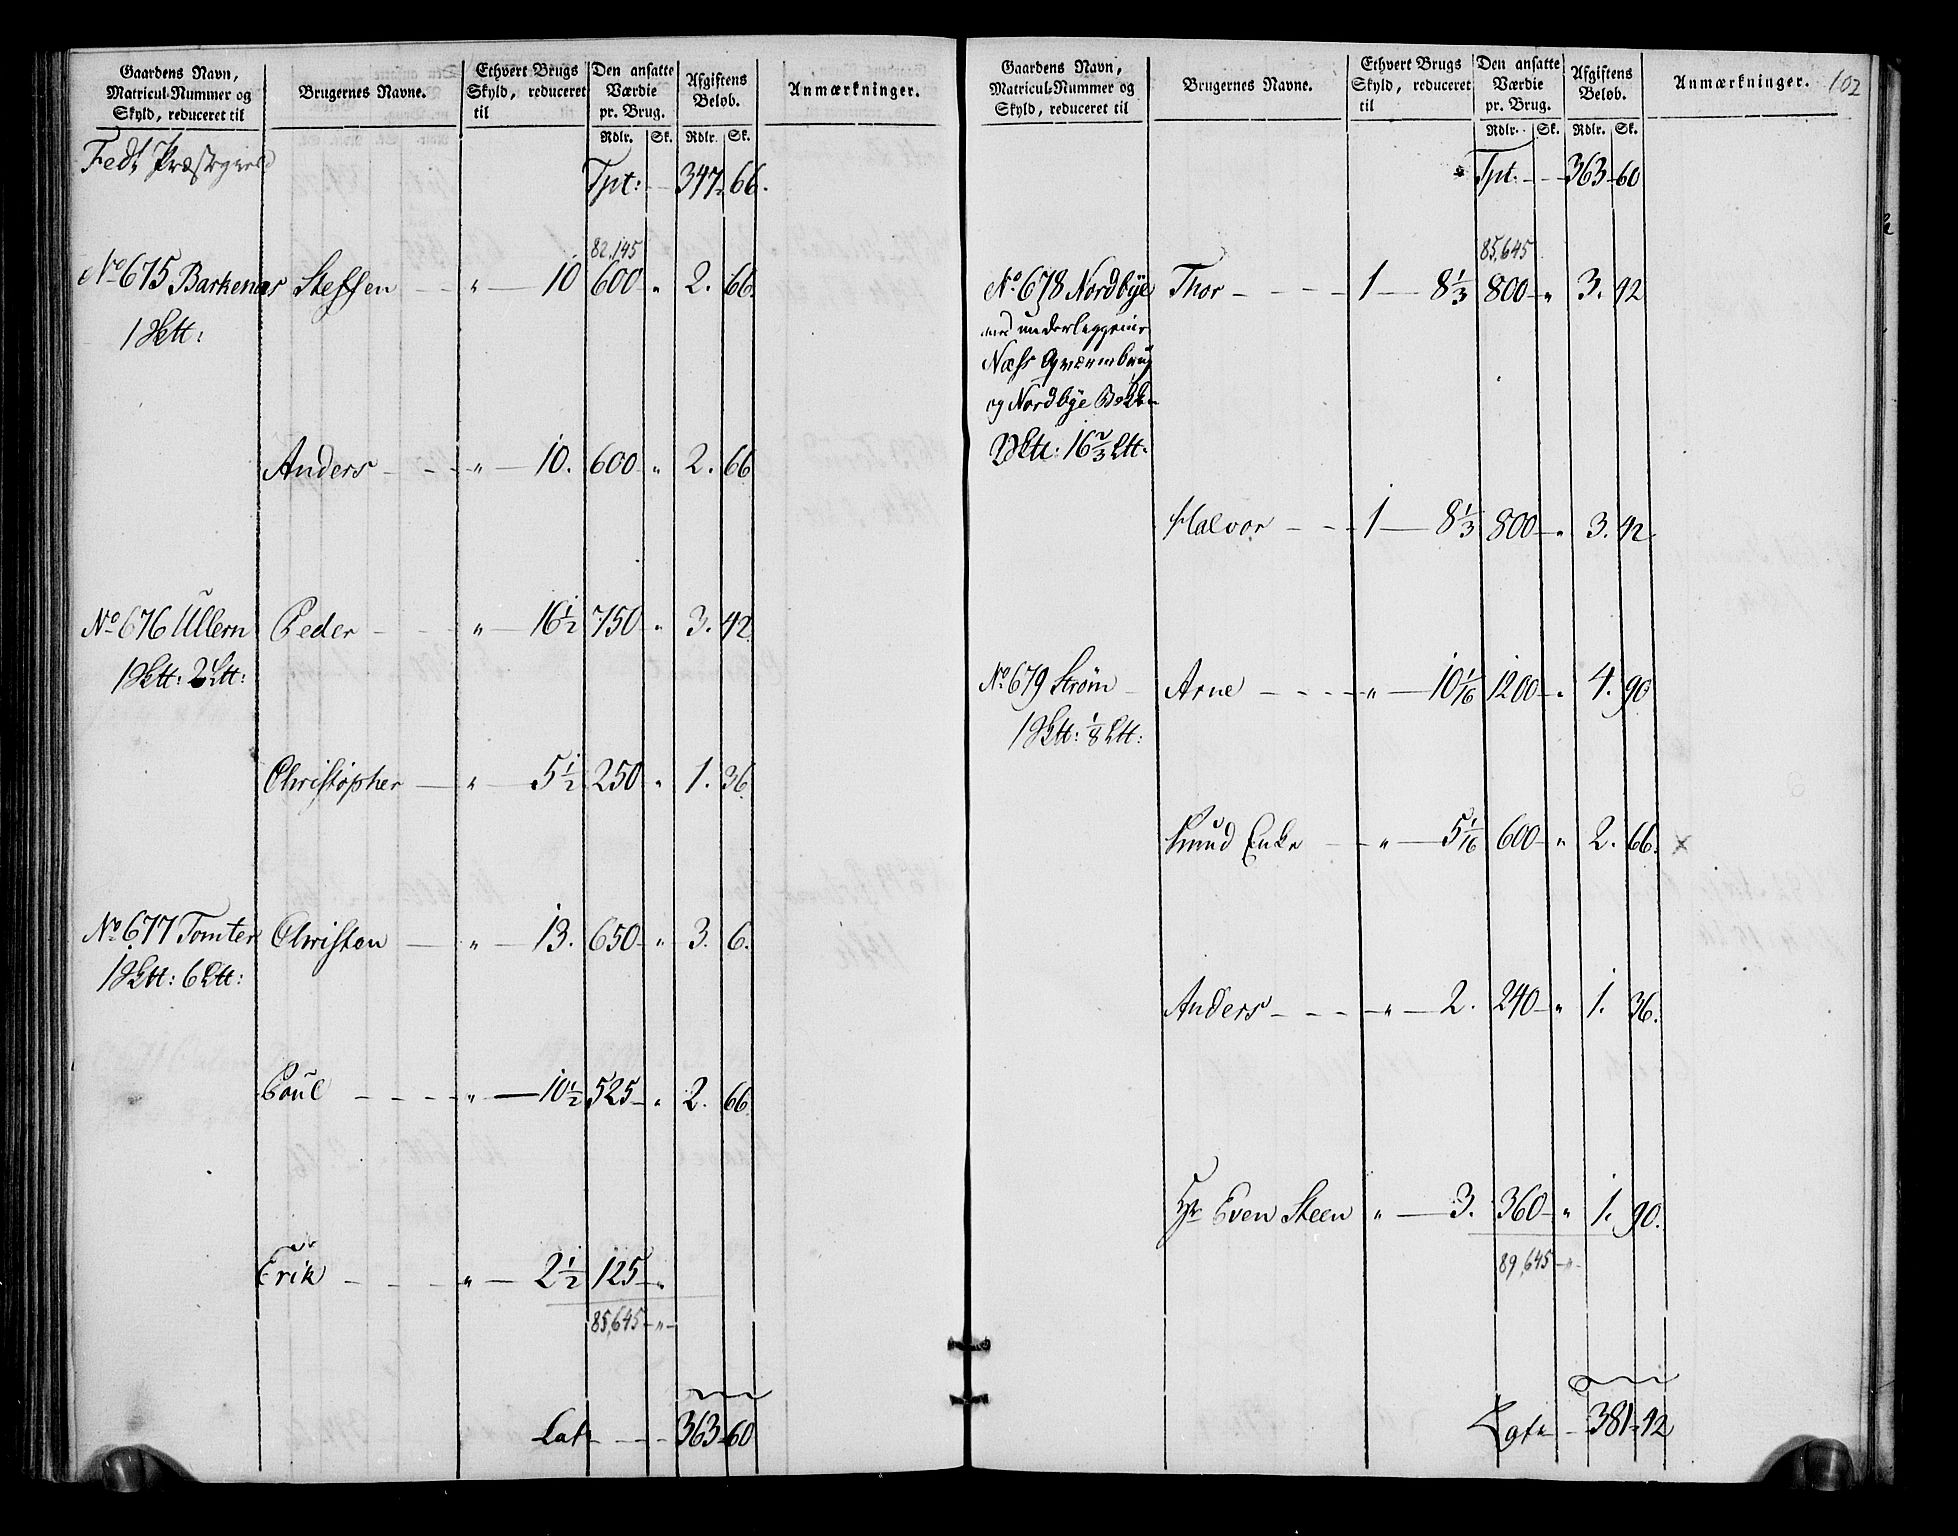 Gaardens Navn, Matricul-Nummer og Skyld, reduceret til | Brugernes Navne. | Ethvert Brugs Skyld, reduceret til | Den ansatte Værdie pr. Brug. | Afgiftens Beløb. | Anmærkninger.
Rdlr. Sk. Rdlr. Sk.
Fedt Præstegield
Tpt: — 347 „ 66.
82,145
No 675 Barkenæs Steffen — „ — 10 600 „ 2. 66.
1 Sktt:
Anders - - - „ — 10. 600 „ 2. 66
No 676 Ullern Peder - - - „ — 16½ 750 „ 3. 42.
1 Sktt: 2 Ltt:
Christopher — „ — 5½ 250 „ 1. 36.
No 677 Tomter Christen — „ — 13. 650 „ 3. 6.
1 Sktt: 6 Ltt:
Poul - - - „ — 10½ 525 „ 2. 66.
Erik - - - „ — 2½ 125 „
85,645 „
Lat - - - 363 „ 60
Gaardens Navn, Matricul-Nummer og Skyld, reduceret til | Brugernes Navne. | Ethvert Brugs Skyld, reduceret til | Den ansatte Værdie pr. Brug. | Afgiftens Beløb. | Anmærkninger. 102
Rdlr. Sk. Rdlr. Sk.
Tpt. - - 363 „ 60
85,645
No 678 Nordbye Thor - - - 1 — 8⅓ 800 „ 3. 42
underliggende
Næss Qværnbrug
og Nordbye
2 Sktt: 16⅔ Ltt:
Halvor - - - 1 — 8⅓ 800 „ 3. 42
No 679 Strøm Arne - - - „ — 10 1/16 1200 „ 4. 90
1 Sktt: ⅛ Ltt:
Knud Enke - - „ — 5 1/16 600 „ 2. 66. x
Anders - - - „ — 2. 240 „ 1. 36.
Hr Even Steen „ — 3. 360 „ 1. 90.
89,645 „
Lat - 381 „ 42